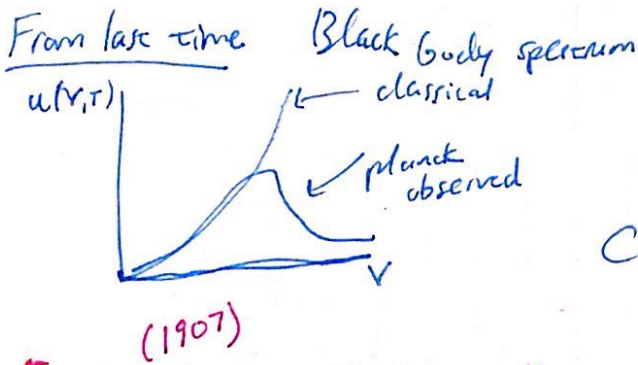 From last time Black body spectrum
u(ν,T)
classical
planck
observed
C
ν
(1907)